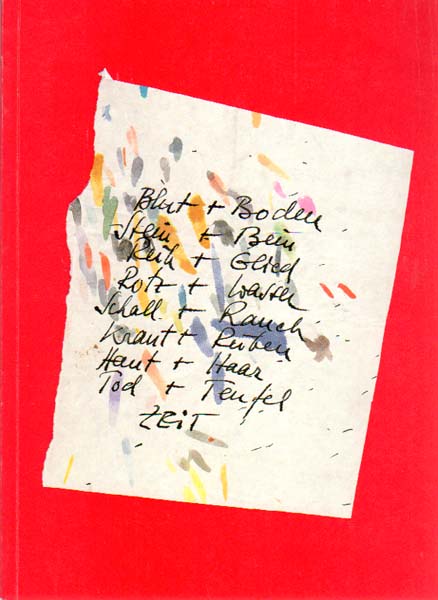 Blut + Boden
Stein + Bein
Reih + Glied
Rotz + Wasser
Schall + Rauch
Kraut + Rüben
Haut + Haar
Tod + Teufel
ZEIT